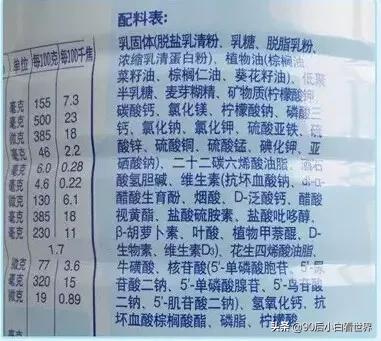 单位 每100克 每100千焦
毫克 155 7.3
毫克 500 23
微克 385 18
毫克 46 2.2
毫克 6.0 0.28
毫克 4.6 0.22
微克 130 6.1
毫克 385 18
毫克 230 11
1.7
微克 77 3.6
毫克 320 15
微克 19 0.89
配料表:
乳固体(脱盐乳清粉、乳糖、脱脂乳粉、
浓缩乳清蛋白粉)、植物油(棕榈油、
菜籽油、棕榈仁油、葵花籽油)、低聚
半乳糖、麦芽糊精、矿物质(柠檬酸钾、
碳酸钙、氯化镁、柠檬酸钠、磷酸三
钙、氯化钠、氯化钾、硫酸亚铁、硫
酸锌、硫酸铜、硫酸锰、碘化钾、亚
硒酸钠)、二十二碳六烯酸油脂、酒石
酸氢胆碱、维生素(抗坏血酸钠、dl-α-
醋酸生育酚、烟酸、D-泛酸钙、醋酸
视黄酯、盐酸硫胺素、盐酸吡哆醇、
β-胡萝卜素、叶酸、植物甲萘醌、D-
生物素、维生素D₃)、花生四烯酸油脂、
牛磺酸、核苷酸(5'-单磷酸胞苷、5'-尿
苷酸二钠、5'-单磷酸腺苷、5'-鸟苷
酸二钠、5'-肌苷酸二钠)、氢氧化钙、抗
坏血酸棕榈酸酯、磷脂、柠檬酸
头条 @90后小白看世界